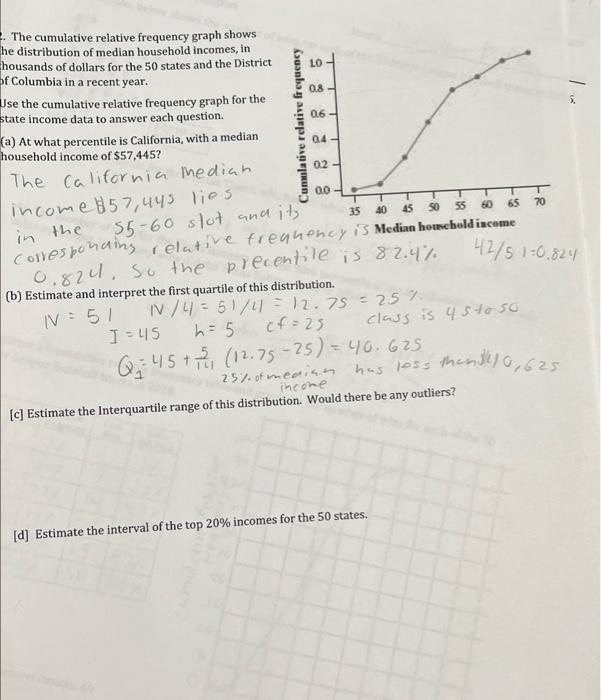 2. The cumulative relative frequency graph shows
he distribution of median household incomes, in
housands of dollars for the 50 states and the District
of Columbia in a recent year.
Use the cumulative relative frequency graph for the
state income data to answer each question.
(a) At what percentile is California, with a median
household income of $57,445?
Cumulative relative frequency
1.0
0.8
0.6
0.4
0.2
0.0
35 40 45 50 55 60 65 70
Median household income
The California median
income $57,445 lies
in the 55-60 slot and its
corresponding relative frequency is
0.824. So the precentile is 82.4%. 42/51=0.824
(b) Estimate and interpret the first quartile of this distribution.
N = 51 N/4 = 51/4 = 12.75 = 25%.
I = 45 h = 5 cf = 25 class is 45 to 50
Q1 = 45 + 5/14 (12.75 - 25) = 40.625
25% of median has less than $40,625
income
[c] Estimate the Interquartile range of this distribution. Would there be any outliers?
[d] Estimate the interval of the top 20% incomes for the 50 states.